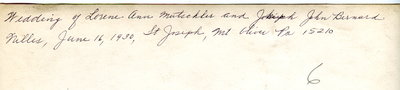 Wedding of Lorene Ann Mutschler and Joseph John Bernard
Vallis, June 16, 1930, St Joseph, Mt Oliver Pa 15210
6